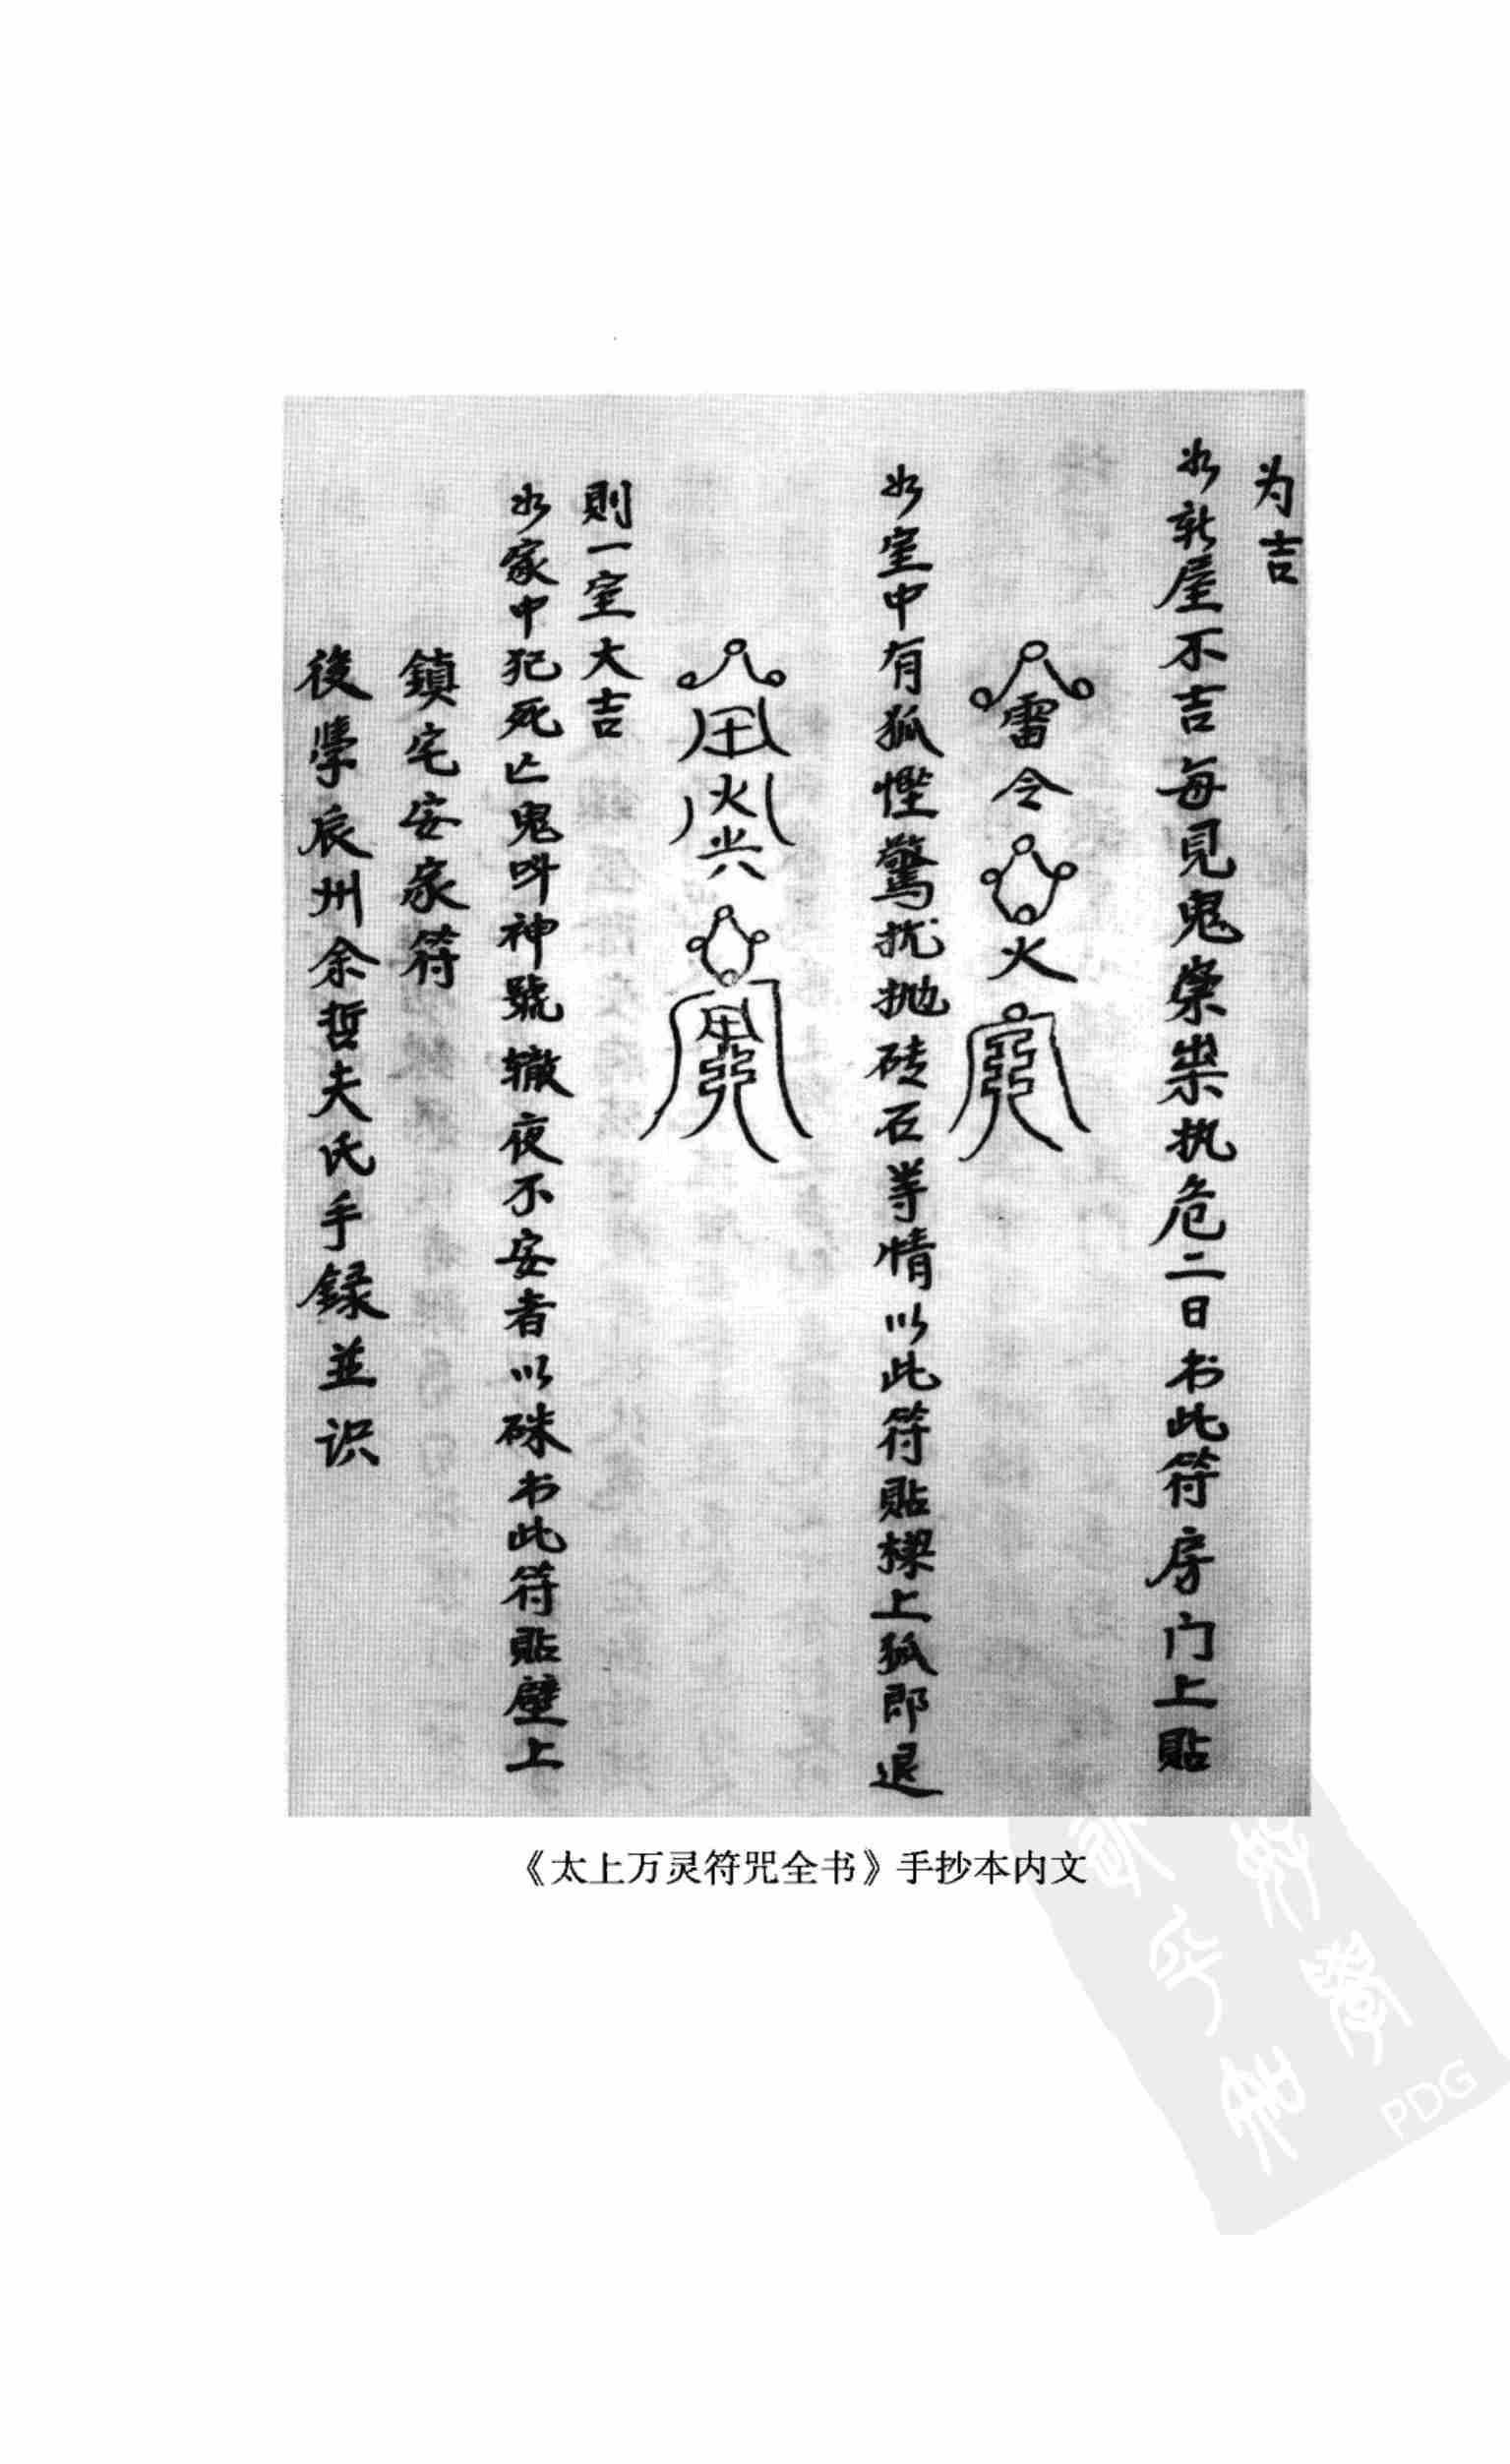 为吉
如新屋不吉每見鬼祟祟执危二日书此符房门上貼
雷令火
如室中有狐怪驚扰抛砖石等情以此符貼樑上狐即退
火
則一室大吉
如家中犯死亡鬼呌神號辙夜不安者以硃书此符貼壁上
鎮宅安家符
後學辰州余哲夫氏手録並识
《太上万灵符咒全书》手抄本内文
PDG